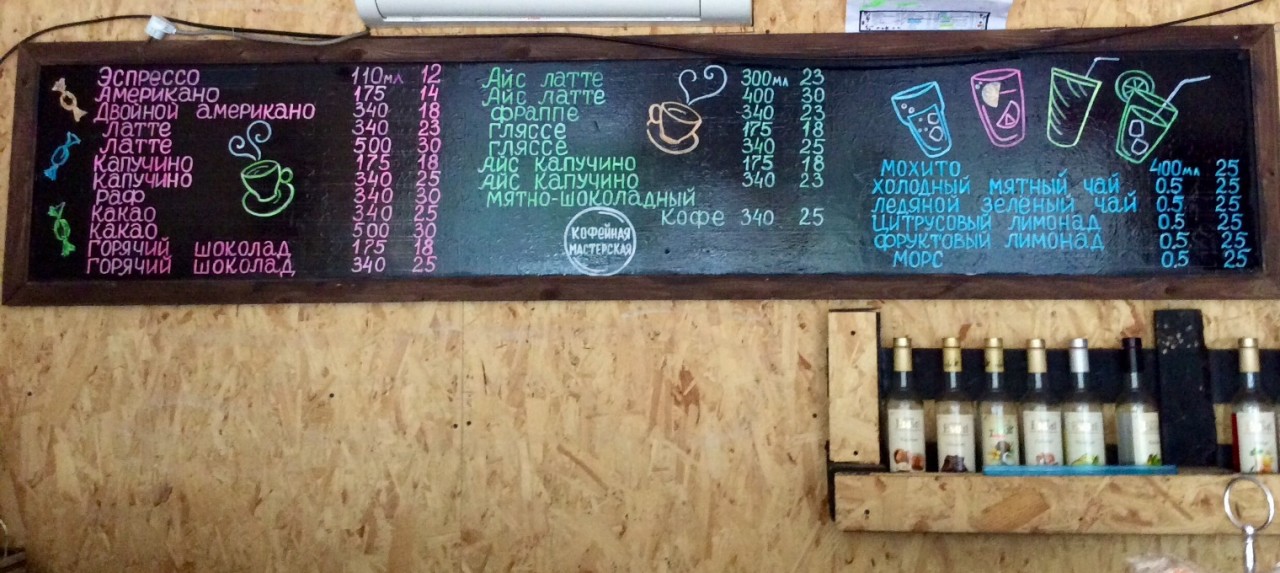 Эспрессо 110мл 12
Американо 175 14
Двойной американо 340 18
Латте 340 23
Латте 500 30
Капучино 175 18
Капучино 340 25
Раф 340 30
Какао 340 25
Какао 500 30
Горячий шоколад 175 18
Горячий шоколад 340 25
Айс латте 300мл 23
Айс латте 400 30
Фраппе 340 23
Гляссе 175 18
Гляссе 340 25
Айс капучино 175 18
Айс капучино 340 23
Мятно-шоколадный
Кофе 340 25
КОФЕЙНАЯ
МАСТЕРСКАЯ
Мохито 400мл 25
Холодный мятный чай 0,5 25
Ледяной зеленый чай 0,5 25
Цитрусовый лимонад 0,5 25
Фруктовый лимонад 0,5 25
Морс 0,5 25